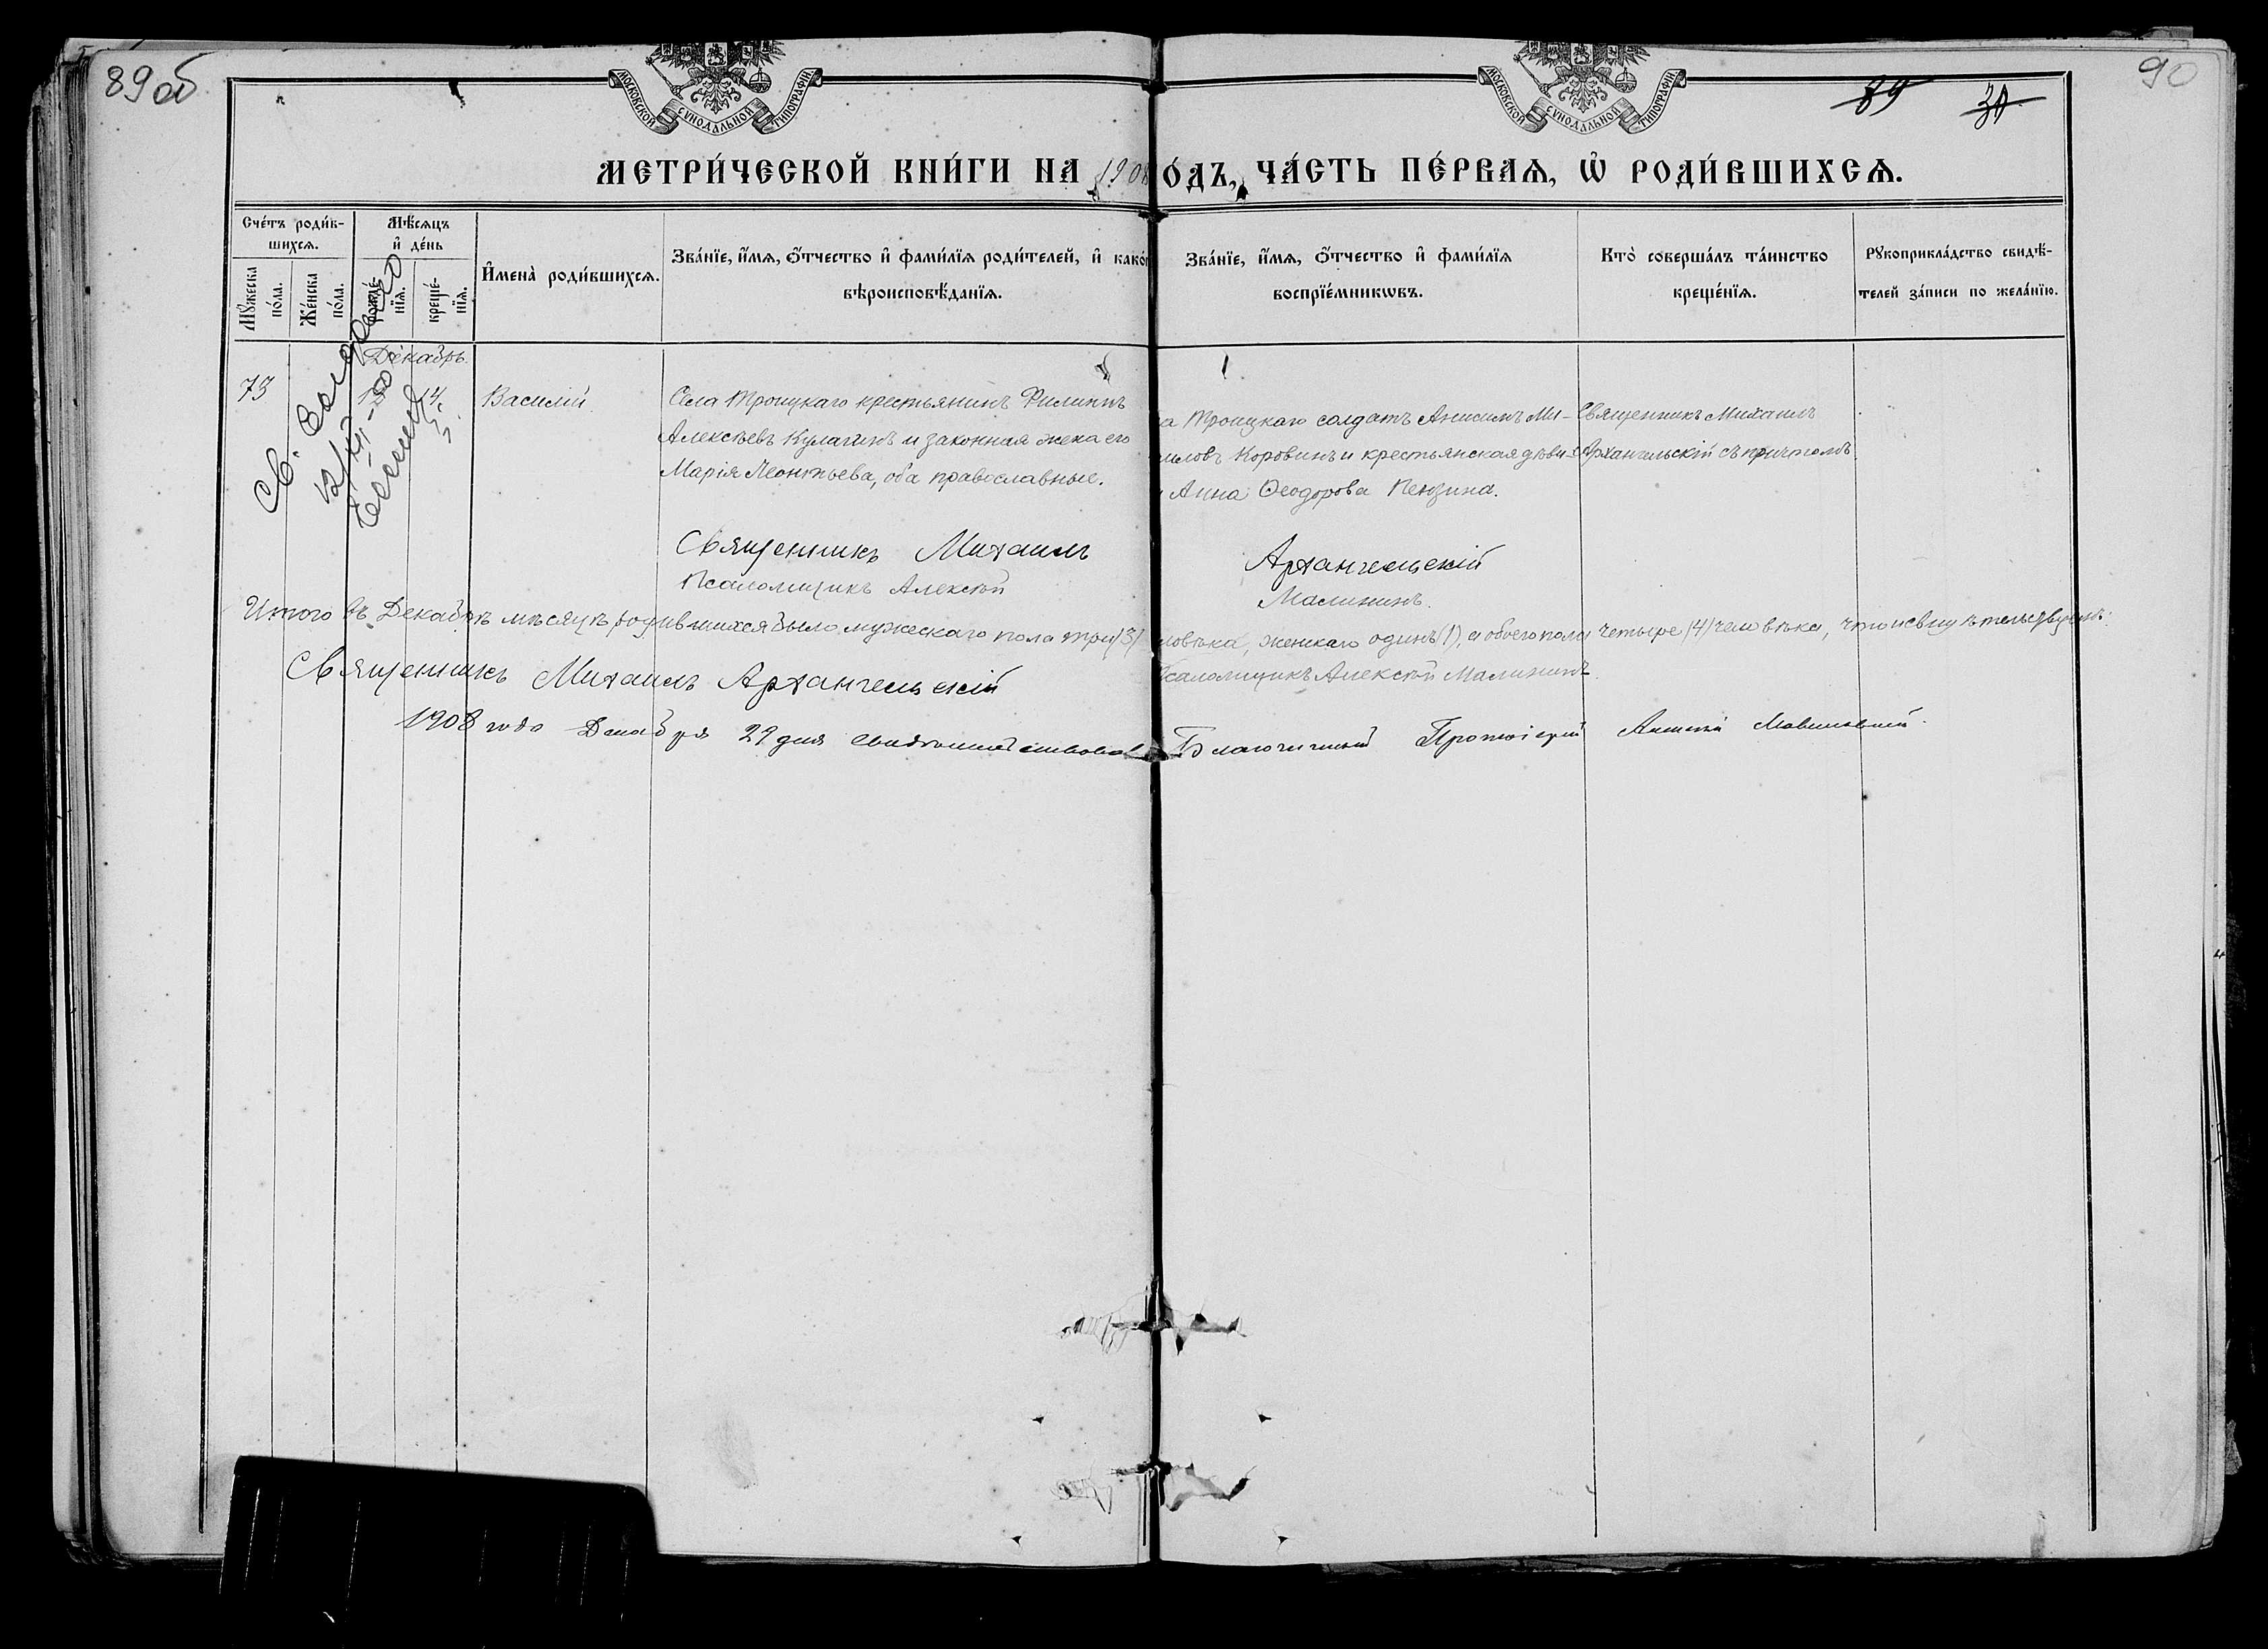 89об
90
89 30
МОСКОВСКОЙ СУНОДАЛЬНОЙ ТИПОГРАФІИ
МОСКОВСКОЙ СУНОДАЛЬНОЙ ТИПОГРАФІИ
МЕТРИ́ЧЕСКОЙ КНИ́ГИ НА 1908 О́ДЪ, ЧА́СТЬ ПЕ́РВАѦ, Ѡ҆ РОДИ́ВШИХСѦ.
Сче́тъ роди́в-
шихсѧ.
Мꙋ́жеска по́ла.
Же́нска по́ла.
Мѣ́сѧцъ и҆ де́нь
рожде́-нїѧ.
креще́-нїѧ.
И҆мена̀ роди́вшихсѧ.
Зва́нїе, и҆́мѧ, ѻ҆́тчество и҆ фами́лїѧ роди́телей, и҆ како́г
вѣроисповѣ́данїѧ.
Зва́нїе, и҆́мѧ, ѻ҆́тчество и҆ фами́лїѧ
воспрїе́мникѡвъ.
Кто̀ соверша́лъ та́инство
креще́нїѧ.
Рꙋкоприкла́дство свидѣ́-
телей за́писи по жела́нїю.
Декабрь.
73 13 14. Василій
Св.
Села Троицкаго крестьянинъ Филиппъ
Алексѣевъ Кулагинъ и законная жена его
Марія Леонтьева, оба православные.
ла Троицкаго солдатъ Анисимъ Ми-
иловъ Коровинъ и крестьянская дѣви-
Анна Ѳеодорова Пензина.
Священникъ Михаилъ
Архангельскій съ причтомъ
Священникъ Михаилъ Архангельскій
Псаломщикъ Алексѣй Малининъ.
Итого въ Декабрѣ мѣсяцѣ родившихся было мужескаго пола три (3) ловѣка, женскаго одинъ (1), а обоего пола четыре (4) человѣка, что и свидѣтельствуемъ:
Священникъ Михаилъ Архангельскій Псаломщикъ Алексѣй Малининъ.
1908 года Декабря 29 дня свидѣтельствовалъ Благочинный Протоіерей